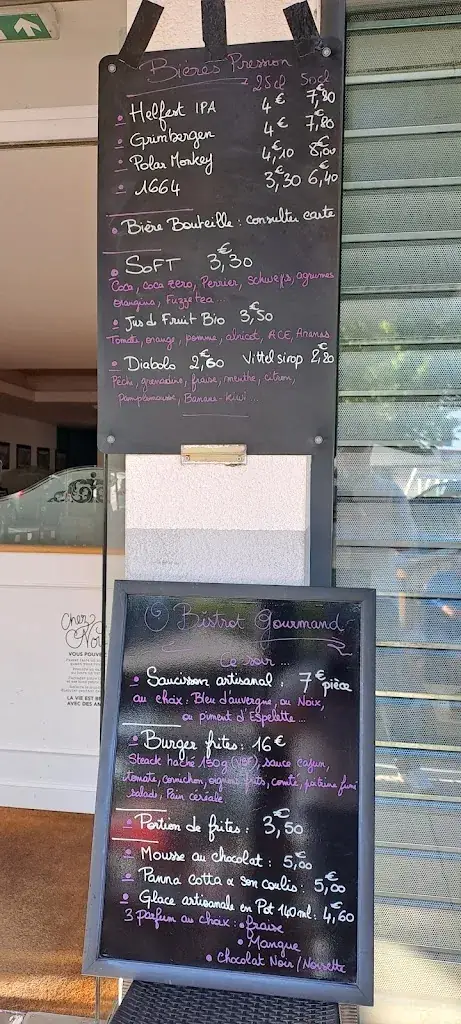 Bières Pression
25cl 50cl
Helfest IPA 4€ 7,80
Grimbergen 4€ 7,80
Polar Monkey 4,10 8,00
1664 3,30 6,40
Bière Bouteille : consulter carte
SOFT 3,30€
Coca, coca zero, Perrier, schweps, agrumes
orangina, Fuzzetea...
Jus de Fruit Bio 3,50€
Tomate, orange, pomme, abricot, ACE, Ananas
Diabolo 2,60€ Vittel sirop 2,80€
Pêche, grenadine, fraise, menthe, citron,
pamplemousse, Banane-kiwi...
Ô Bistrot Gourmand
Ce soir...
Saucisson artisanal : 7€ pièce
au choix : Bleu d'auvergne, ou Noix,
ou piment d'Espelette...
Burger frites : 16€
Steack haché 150g (VBF), sauce cajun,
tomate, cornichon, oignons frits, comté, poitrine fumé
salade, Pain céréale
Portion de frites : 3,50€
Mousse au chocolat : 5,00€
Panna cotta & son coulis : 5,00€
Glace artisanale en Pot 140ml : 4,60€
3 Parfum au choix : • fraise
• Mangue
• Chocolat Noir / Noisette
Chez
VOUS POUVE
LA VIE EST BE
AVEC DES AN